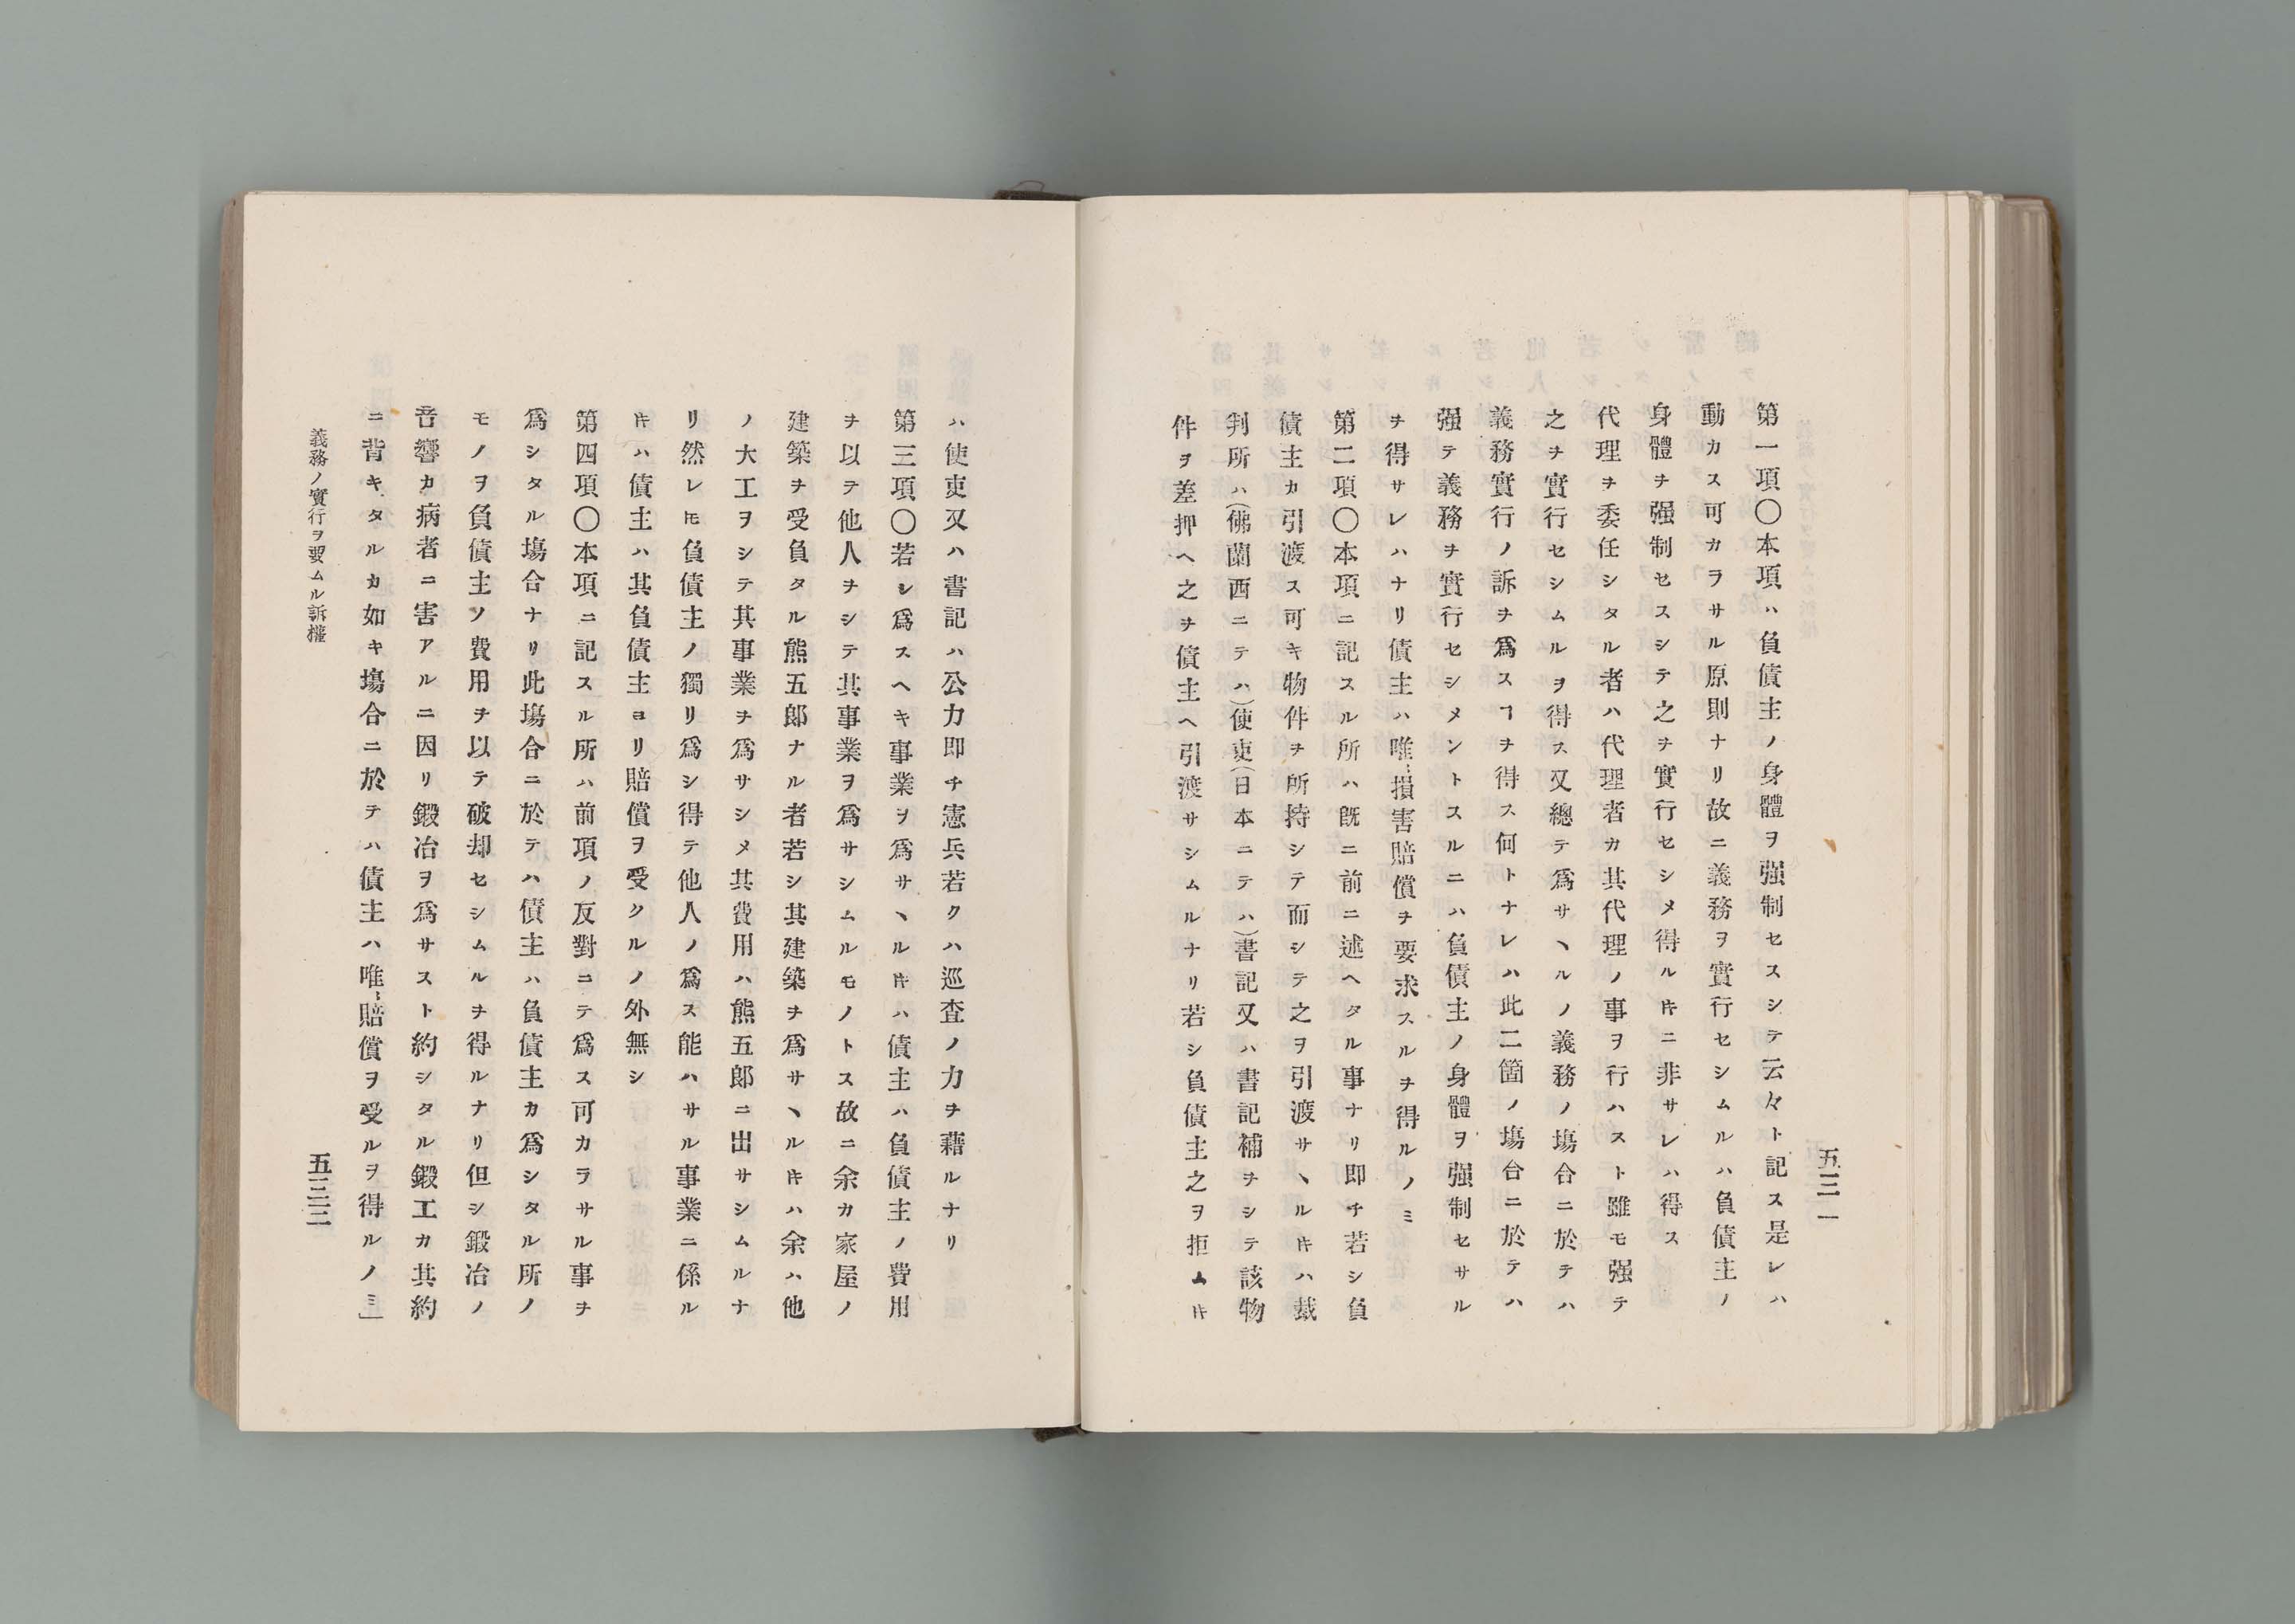 五三二
第一項〇本項ハ負債主ノ身體ヲ强制セスシテ云々ト記ス是レハ
動カス可カラサル原則ナリ故ニ義務ヲ實行セシムルハ負債主ノ
身體ヲ强制セスシテ之ヲ實行セシメ得ルキニ非サレハ得ス
代理ヲ委任シタル者ハ代理者カ其代理ノ事ヲ行ハスト雖モ强テ
之ヲ實行セシムルヲ得ス又總テ爲サヽルノ義務ノ塲合ニ於テハ
義務實行ノ訴ヲ爲スヿヲ得ス何トナレハ此二箇ノ塲合ニ於テハ
强テ義務ヲ實行セシメントスルニハ負債主ノ身體ヲ强制セサル
ヲ得サレハナリ債主ハ唯〻損害賠償ヲ要求スルヲ得ルノミ
第二項〇本項ニ記スル所ハ既ニ前ニ述ヘタル事ナリ即チ若シ負
債主カ引渡ス可キ物件ヲ所持シテ而シテ之ヲ引渡サヽルキハ裁
判所ハ(佛蘭西ニテハ)使吏(日本ニテハ)書記又ハ書記補ヲシテ該物
件ヲ差押ヘ之ヲ債主ヘ引渡サシムルナリ若シ負債主之ヲ拒ムキ
ハ使吏又ハ書記ハ公力即チ憲兵若クハ巡査ノ力ヲ藉ルナリ
第三項〇若シ爲スヘキ事業ヲ爲サヽルキハ債主ハ負債主ノ費用
ヲ以テ他人ヲシテ其事業ヲ爲サシムルモノトス故ニ余カ家屋ノ
建築ヲ受負タル熊五郎ナル者若シ其建築ヲ爲サヽルキハ余ハ他
ノ大工ヲシテ其事業ヲ爲サシメ其費用ハ熊五郎ニ出サシムルナ
リ然レ𪜈負債主ノ獨リ爲シ得テ他人ノ爲ス能ハサル事業ニ係ル
キハ債主ハ其負債主ヨリ賠償ヲ受クルノ外無シ
第四項〇本項ニ記スル所ハ前項ノ反對ニテ爲ス可カラサル事ヲ
爲シタル塲合ナリ此塲合ニ於テハ債主ハ負債主カ爲シタル所ノ
モノヲ負債主ノ費用ヲ以テ破却セシムルヲ得ルナリ但シ鍛冶ノ
音響カ病者ニ害アルニ因リ鍛冶ヲ爲サスト約シタル鍛工カ其約
ニ背キタルカ如キ塲合ニ於テハ債主ハ唯〻賠償ヲ受ルヲ得ルノミ」
義務ノ實行ヲ要ムル訴權
五三三